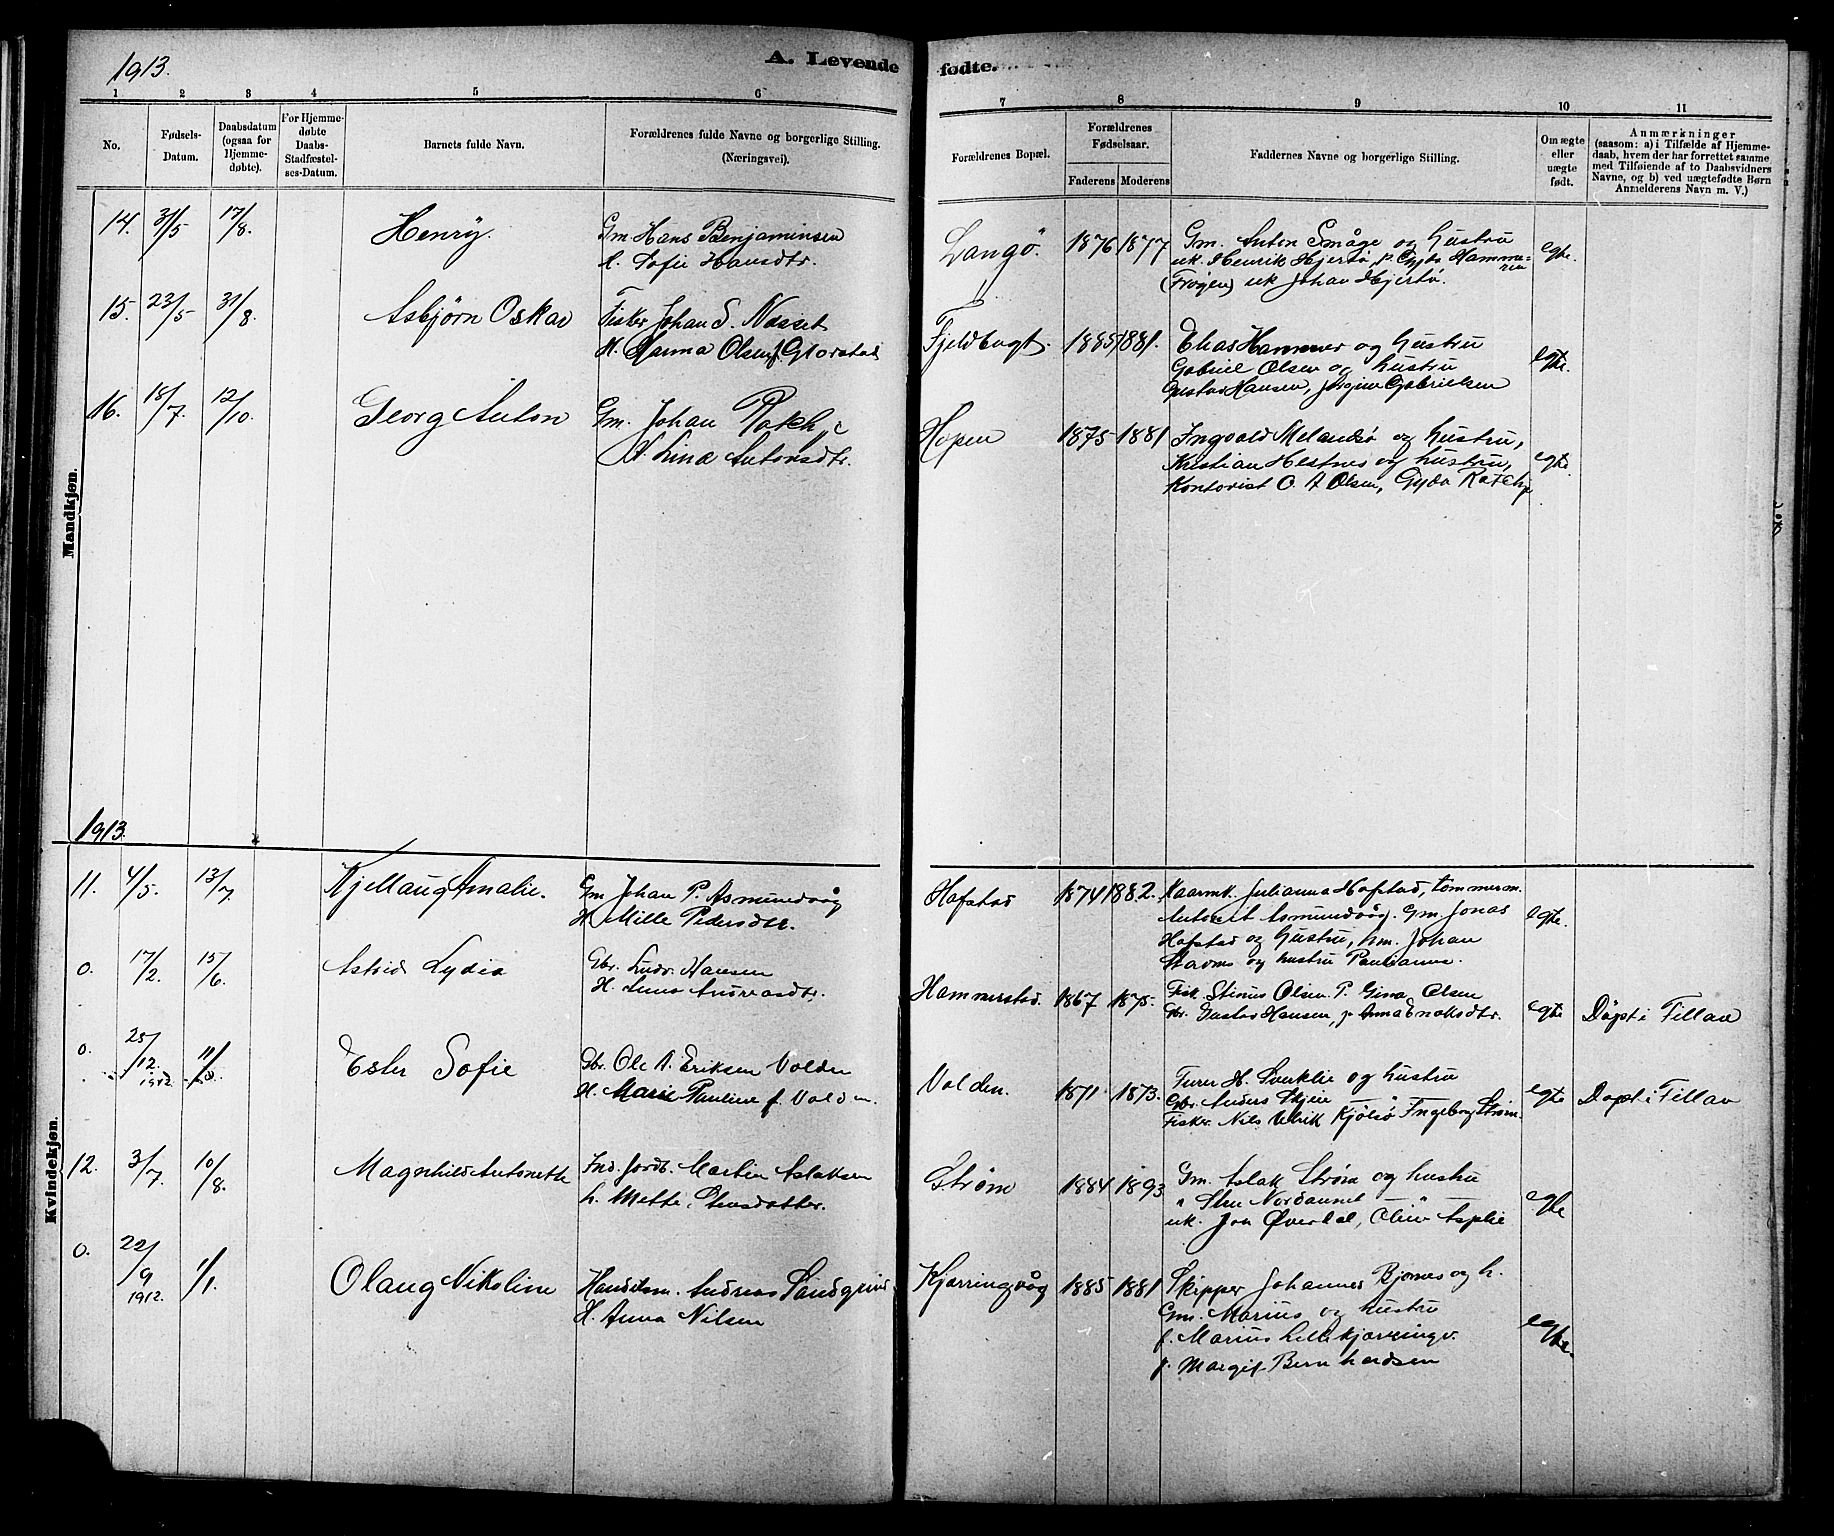 1913.
A. Levende fødte.
1 2 3 4 5 6 7 8 9 10 11
No.
Fødsels-Datum.
Daabsdatum (ogsaa for Hjemmedøbte).
For Hjemmedøbte Daabs-Stadfæstelses-Datum.
Barnets fulde Navn.
Forældrenes fulde Navne og borgerlige Stilling.
(Næringsvei).
Forældrenes Bopæl.
Forældrenes Fødselsaar.
Faderens Moderens
Faddernes Navne og borgerlige Stilling.
Om ægte eller uægte født.
Anmærkninger
(saasom: a) i Tilfælde af Hjemmedaab, hvem der har forrettet samme med Tilføiende af to Daabsvidners Navne, og b) ved uægtefødte Børn Anmelderens Navn m. V.)
Mandkjøn.
14. 31/5 17/8. Henry. Gm Hans Benjaminsen
H. Sofie Hansdtr.
Langö. 1876 1877 Gm. Anton Småge og hustru
uk. Henrik Hjertö, p. Gyda Hammeren
(Frøyen) uk Johan Hjertö.
egte.
15. 23/5 31/8. Asbjörn Oskar Fisker Johan S. Nesset
H. Marma Olsen f. Glorstad
Fjeldbugt. 1885 1881. Elias Hammer og hustru
Gabriel Olsen og hustru
Gustav Hansen, Jörgine Gabrielsen
egte.
16. 18/7. 12/10. Georg Anton Gm. Johan
H. Lina Antonsdtr.
Hopen 1875 1881 Ingvald Melandsö og hustru,
Kristian Hestnes og hustru,
Kontorist O. A Olsen, Gyda
egte.
1913.
Kvindekjøn.
11. 4/5. 13/7. Kjellaug Amalie. Gm Johan P. Asmundvåg
H. Mille Pedersdtr.
Hofstad 1874 1882. Kaarmk. Julianna Hofstad, tömmerm.
Anton A Asmundvåg. Gm Jonas
Hofstad og hustru, hm. Johan
Stavms og hustru Paulianna.
egte.
0. 17/2. 15/6. Astrid Lydia Gbr. Ludv. Hansen
H. Anna Andreasdtr.
Hammerstad. 1867 1875. Fisk. Stinus Olsen. P. Gina Olsen
Gbr. Gustav Hansen, p. Anna Enoksdtr.
egte Döpt i Fillan
0. 25/12. 1912. Ester Sofie Gbr. Ole A. Eriksen Volden
H. Marie Pauline f. Volden.
Volden. 1871 1873. Turer H. Sverklie og hustru
Gbr. Anders Skjeie — " —
Fisker Nils Ulrik Kjölsö Ingeborg Ström.
egte Döpt i Fillan
12. 3/7. 10/8. Magnhild Antonette Ind. Jordb. Martin Aslaksen
h. Mette Stensdatter.
Ström 1884 1893 Gm. Aslak Ström og hustru
" Sten Nordanmel — " —
uk. Jon Øverdal, Oline Asplie
egte
0. 22/9 1912. 1/1. Olaug Nikoline Handelsm. Andreas Sandgrind
H. Anna Nilsen
Kjerringvåg 1885 1881 Skipper Johannes Bjornes og h.
Gm. Marius og hustru
f. Marius Lillekjerringv.
p. Margit Bernhardsen
egte.